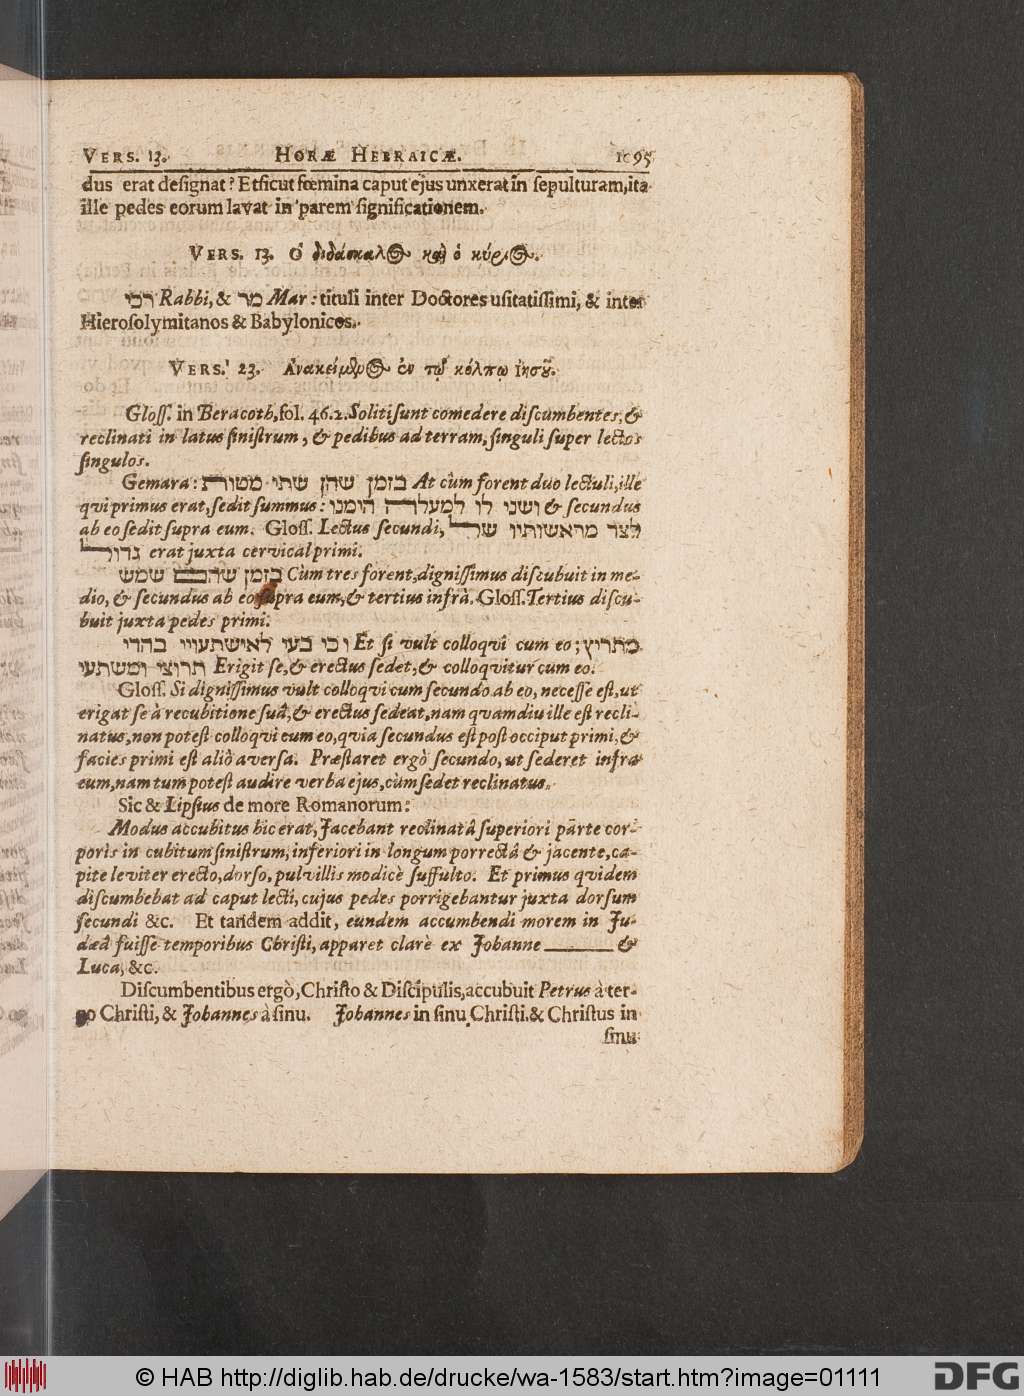 VERS. 13. HORÆ HEBRAICÆ. 1095
dus erat deſignat? Et ſicut fœmina caput ejus unxerat in ſepulturam, ita
ille pedes eorum lavat in parem ſignificationem.
VERS. 13. Ὁ διδάσκαλος καὶ ὁ κύριος.
רבי Rabbi, & מר Mar: tituli inter Doctores uſitatiſſimi, & inter
Hieroſolymitanos & Babylonicos.
VERS. 23. Ἀνακείμενος ἐν τῷ κόλπῳ Ἰησοῦ.
Gloſſ. in Beracoth, fol. 46.2. Soliti ſunt comedere diſcumbentes, &
reclinati in latus ſiniſtrum, & pedibus ad terram, ſinguli ſuper lectos
ſingulos.
Gemara: בזמן שהן שתי מטות At cùm forent duo lectuli, ille
qui primus erat, ſedit ſummus: ושני לו למעלה הימנו & ſecundus
ab eo ſedit ſupra eum. Gloſſ. Lectus ſecundi, לצד מראשותיו של
גדול erat juxta cervical primi.
בזמן שהם שמש Cùm tres forent, digniſſimus diſcubuit in me-
dio, & ſecundus ab eo ſupra eum, & tertius infrà. Gloſſ. Tertius diſcu-
buit juxta pedes primi.
וכי בעי לאישתעויי בהדי Et ſi vult colloqvi cum eo; מתריץ
תרוצי ומשתעי Erigit ſe, & erectus ſedet, & colloqvitur cum eo.
Gloſſ. Si digniſſimus vult colloqvi cum ſecundo ab eo, neceſſe eſt, ut
erigat ſe à recubitione ſuâ, & erectus ſedeat, nam qvamdiu ille eſt recli-
natus, non poteſt colloqvi cum eo, qvia ſecundus eſt poſt occiput primi, &
facies primi eſt aliò averſa. Præſtaret ergò ſecundo, ut ſederet infra
eum, nam tum poteſt audire verba ejus, cùm ſedet reclinatus.
Sic & Lipſius de more Romanorum:
Modus accubitus hic erat, Jacebant reclinatâ ſuperiori parte cor-
poris in cubitum ſiniſtrum, inferiori in longum porrectâ & jacente, ca-
pite leviter erecto, dorſo, pulvillis modicè ſuffulto. Et primus qvidem
diſcumbebat ad caput lecti, cujus pedes porrigebantur juxta dorſum
ſecundi &c. Et tandem addit, eundem accumbendi morem in Ju-
dæâ fuiſſe temporibus Chriſti, apparet clarè ex Johanne ——— &
Luca, &c.
Diſcumbentibus ergò, Chriſto & Diſcipulis, accubuit Petrus à ter-
go Chriſti, & Johannes à ſinu. Johannes in ſinu Chriſti. & Chriſtus in
ſinu
© HAB http://diglib.hab.de/drucke/wa-1583/start.htm?image=01111
DFG